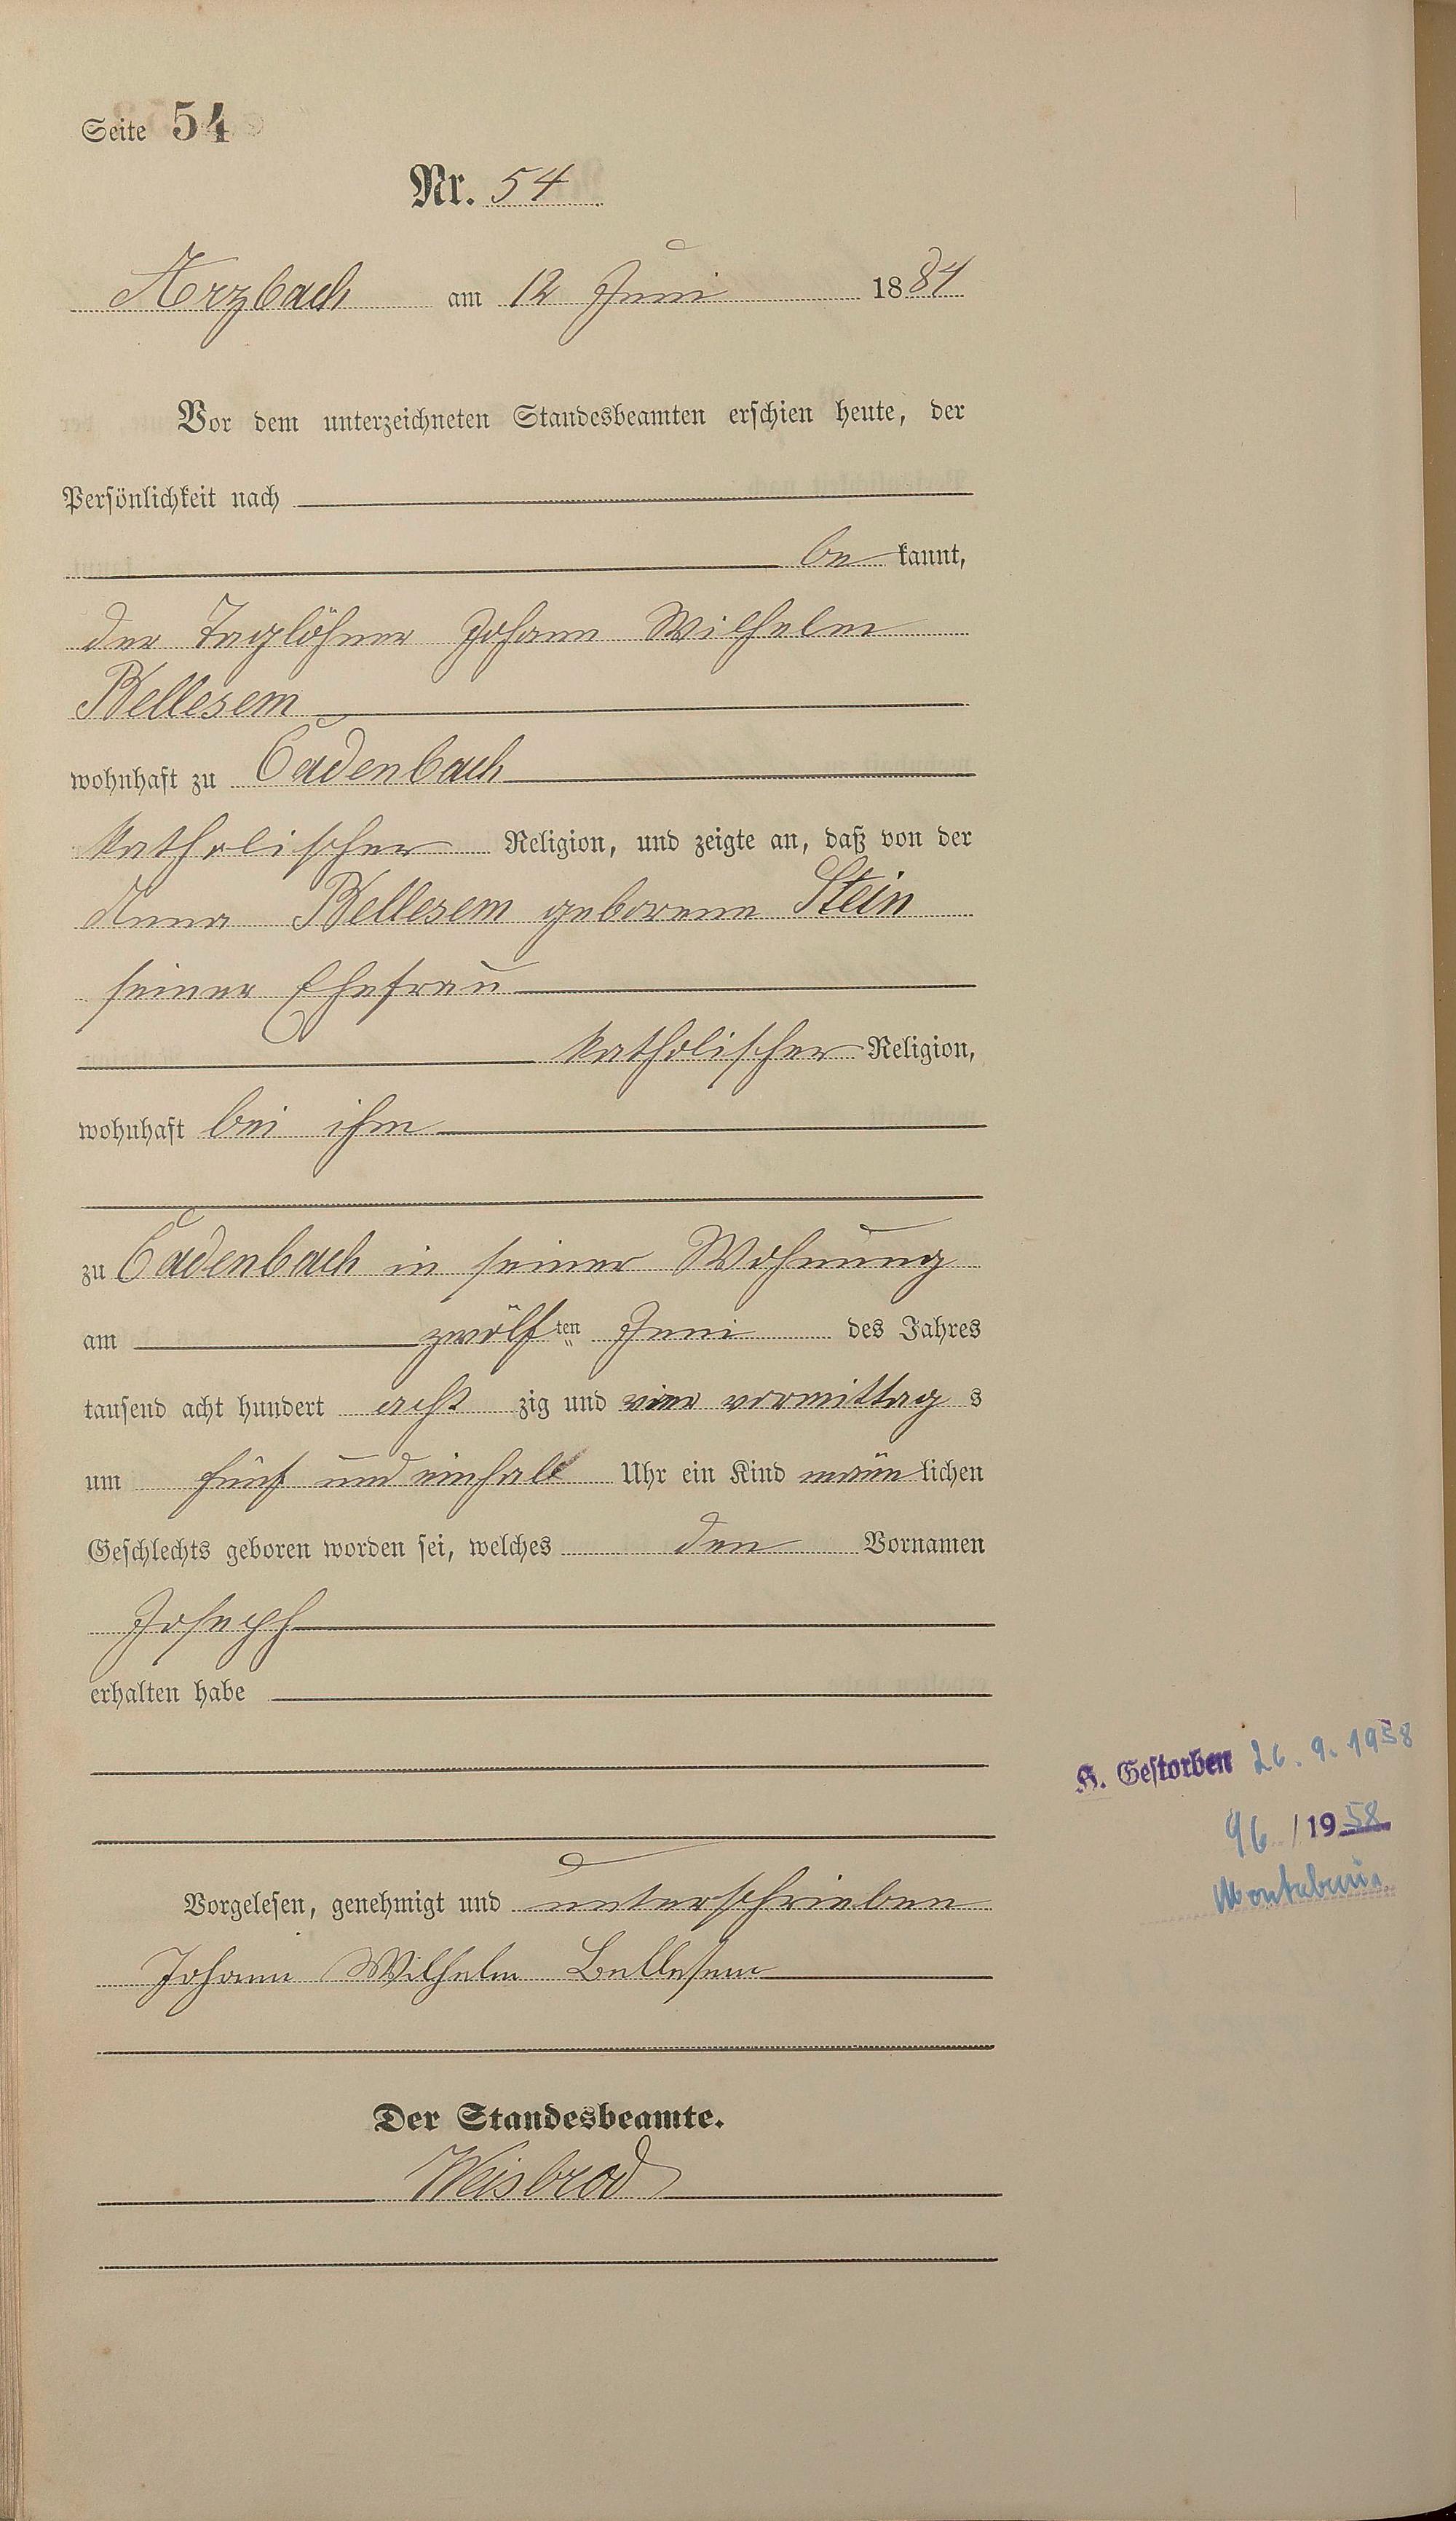 Seite 54
Nr. 54
Arzbach am 12 Juni 1884
Vor dem unterzeichneten Standesbeamten erschien heute, der
Persönlichkeit nach
be kannt,
der Taglöhner Johann Wilhelm
Bellesem
wohnhaft zu Cadenbach
katholischer Religion, und zeigte an, daß von der
Anna Bellesem geborene Stein
seiner Ehefrau
katholischer Religion,
wohnhaft bei ihm
zu Cadenbach in seiner Wohnung
am zwölf ten Juni des Jahres
tausend acht hundert acht zig und vier vormittag s
um fünf und einhalb Uhr ein Kind männ lichen
Geschlechts geboren worden sei, welches den Vornamen
Joseph
erhalten habe
K. Gestorben 26. 9. 1958
96 / 1958
Montabaur
Vorgelesen, genehmigt und unterschrieben
Johann Wilhelm Bellesem
Der Standesbeamte.
Weisbrod